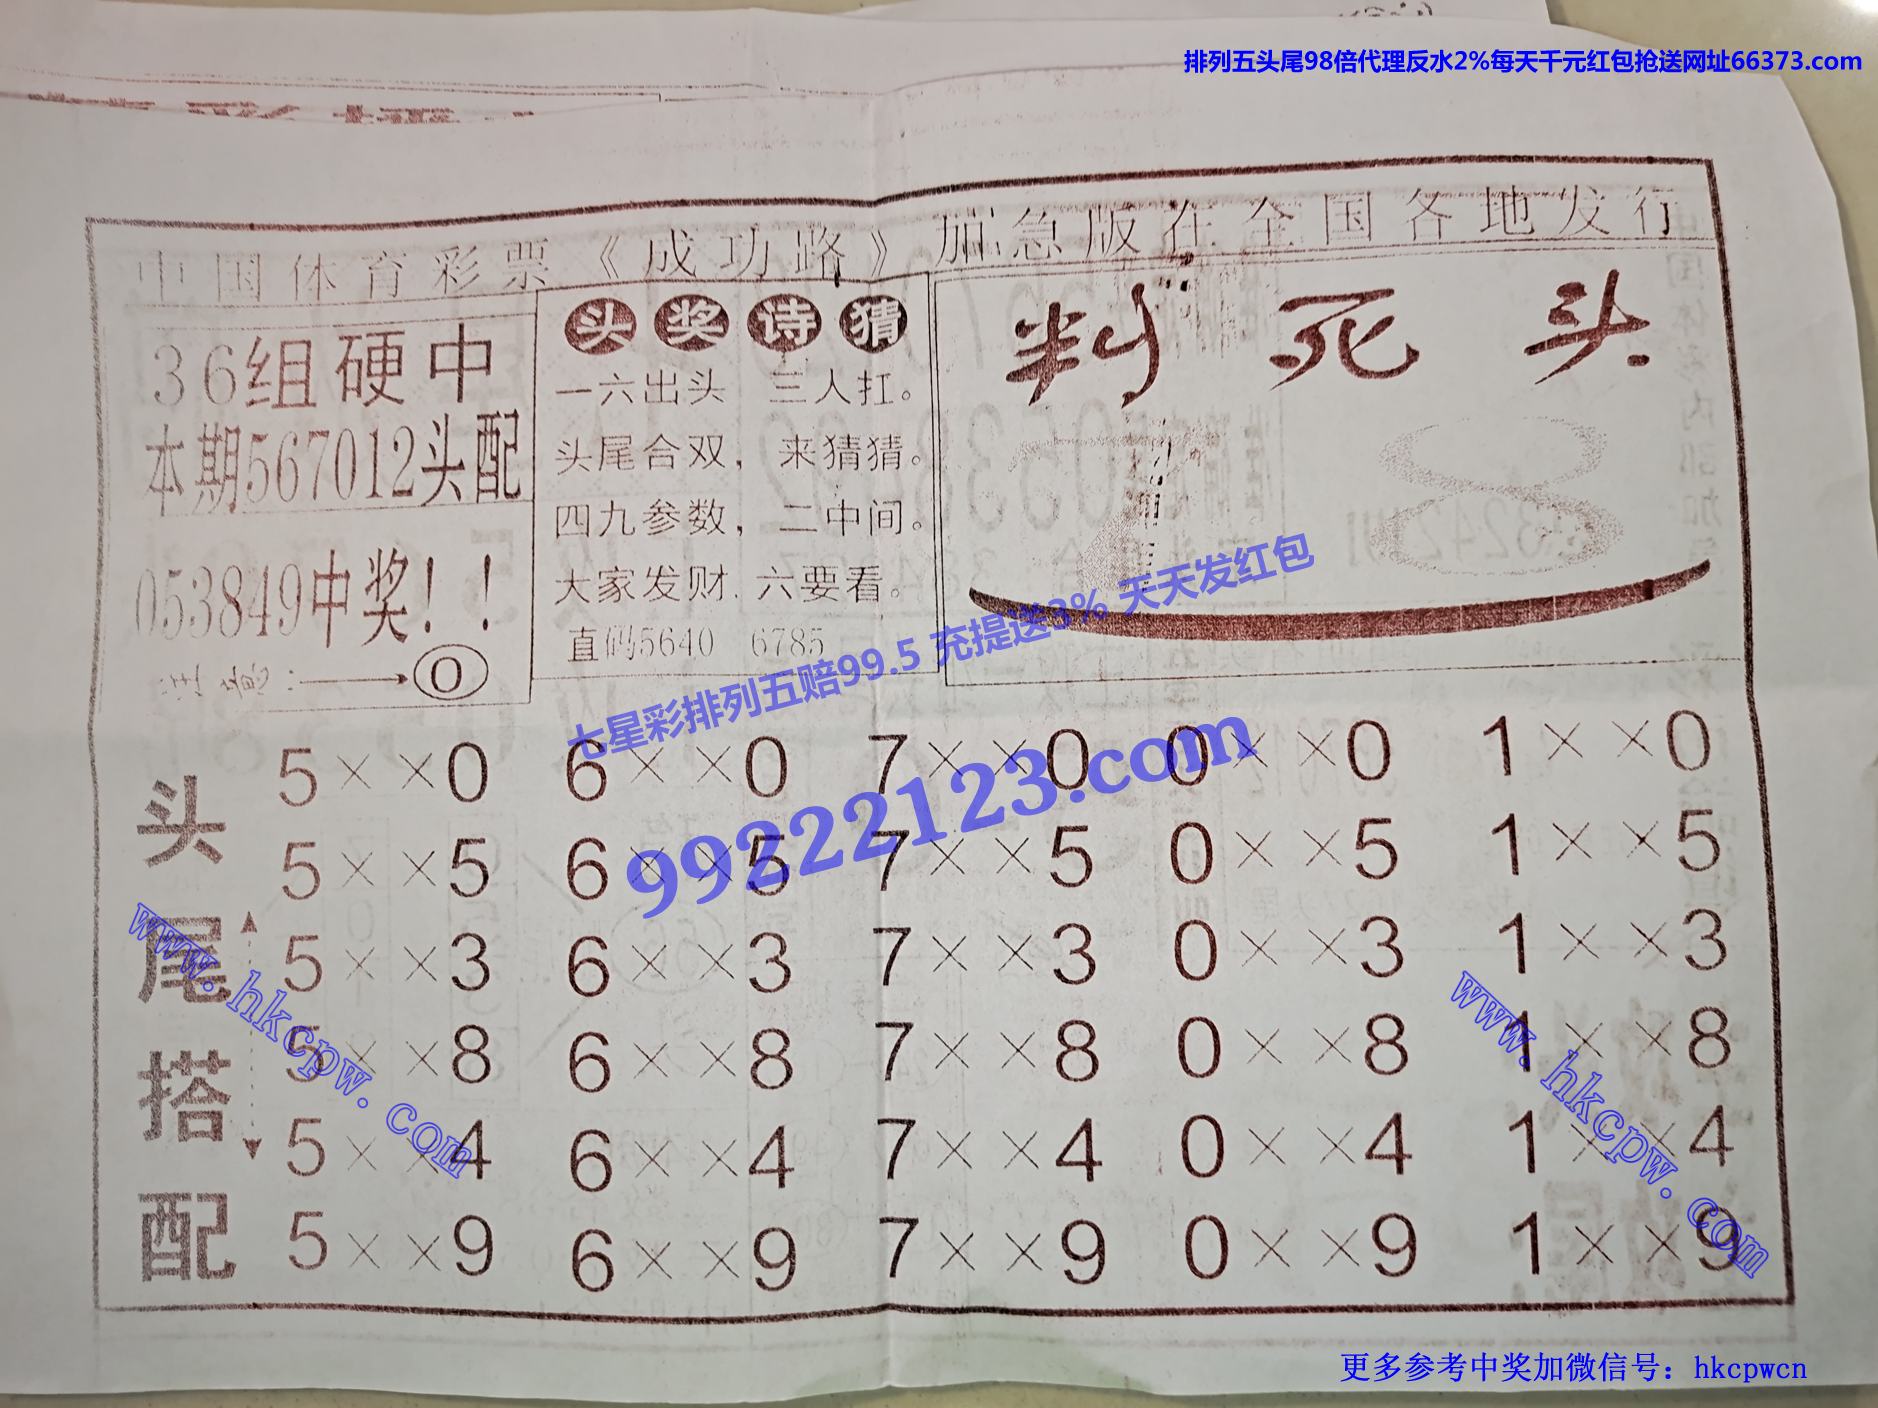 排列五头尾98倍代理反水2%每天千元红包抢送网址66373.com
中国体育彩票《成功路》加急版在全国各地发行
36组硬中
本期567012头配
053849中奖！！
注意：
0
头奖诗猜
一六出头 三人扛。
头尾合双，来猜猜。
四九参数，二中间。
大家发财.六要看。
直码5640 6785
判死头
七星彩排列五赔99.5 充提送3% 天天发红包
99222123.com
头尾搭配
5××0 6××0 7××0 0××0 1××0
5××5 6××5 7××5 0××5 1××5
5××3 6××3 7××3 0××3 1××3
5××8 6××8 7××8 0××8 1××8
5××4 6××4 7××4 0××4 1××4
5××9 6××9 7××9 0××9 1××9
www.hkcpw.com
www.hkcpw.com
更多参考中奖加微信号：hkcpwcn